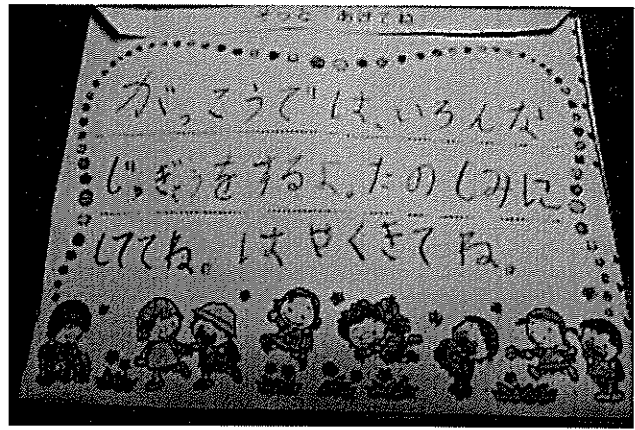 そっと あけてね
がっこうでは、いろんな
じゅぎょうをするよ。たのしみに
しててね。はやくきてね。